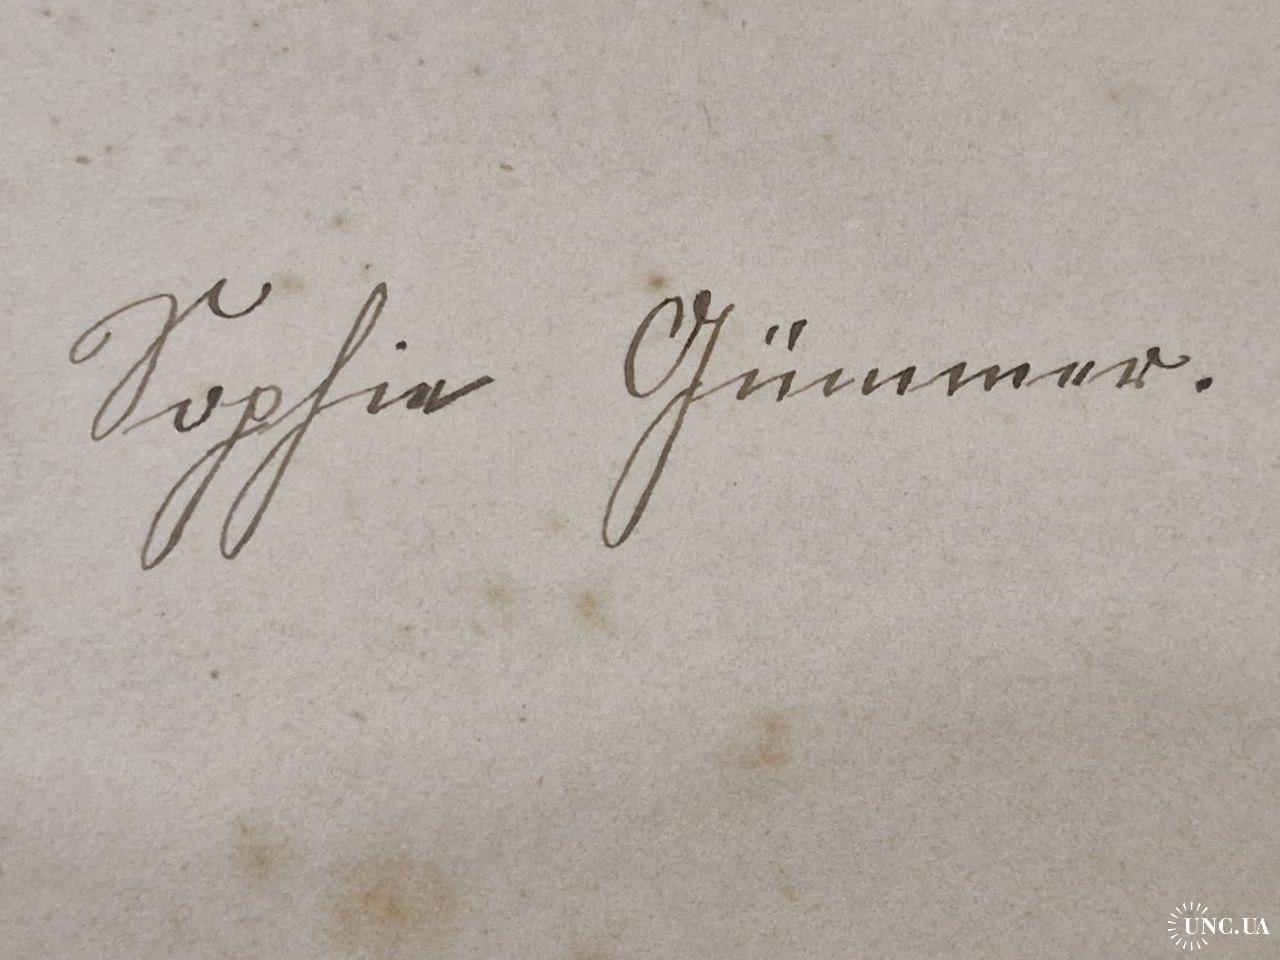 Sophie Gümmer.
UNC.UA